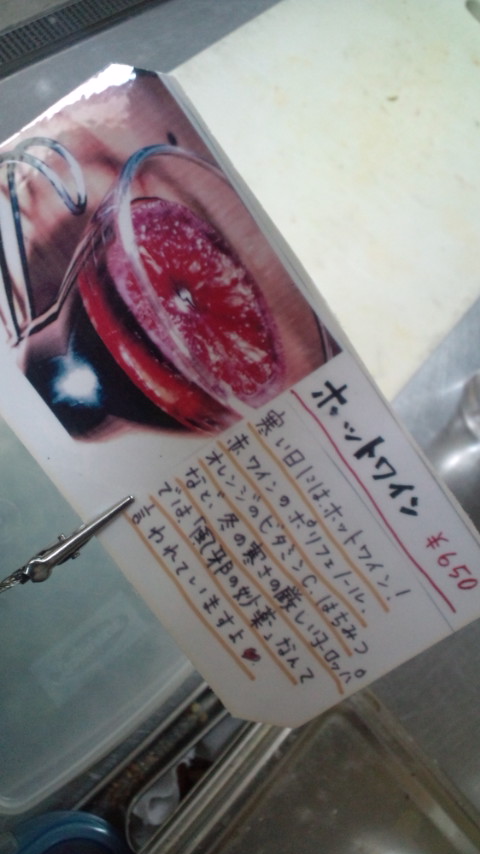 ホットワイン
¥650
寒い日にはホットワイン!
赤ワインのポリフェノール、
オレンジのビタミンC、はちみつ
など、冬の寒さの厳しいヨーロッパ
では、「風邪の妙薬」なんて
言われていますよ♥